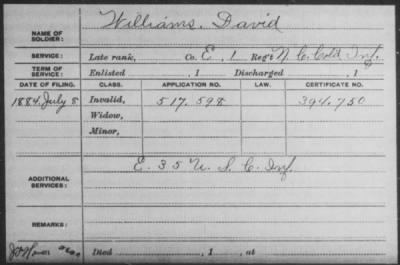 NAME OF SOLDIER: Williams, David
SERVICE: Late rank, Co. E, 1 Reg't N. C. Col'd Inf.
TERM OF SERVICE: Enlisted , 1 Discharged , 1
DATE OF FILING. CLASS. APPLICATION NO. LAW. CERTIFICATE NO.
1884, July 8 Invalid, 517.598 394.750
Widow,
Minor,
ADDITIONAL SERVICES: E. 35 U. S. C. Inf.
REMARKS:
Died , 1 , at